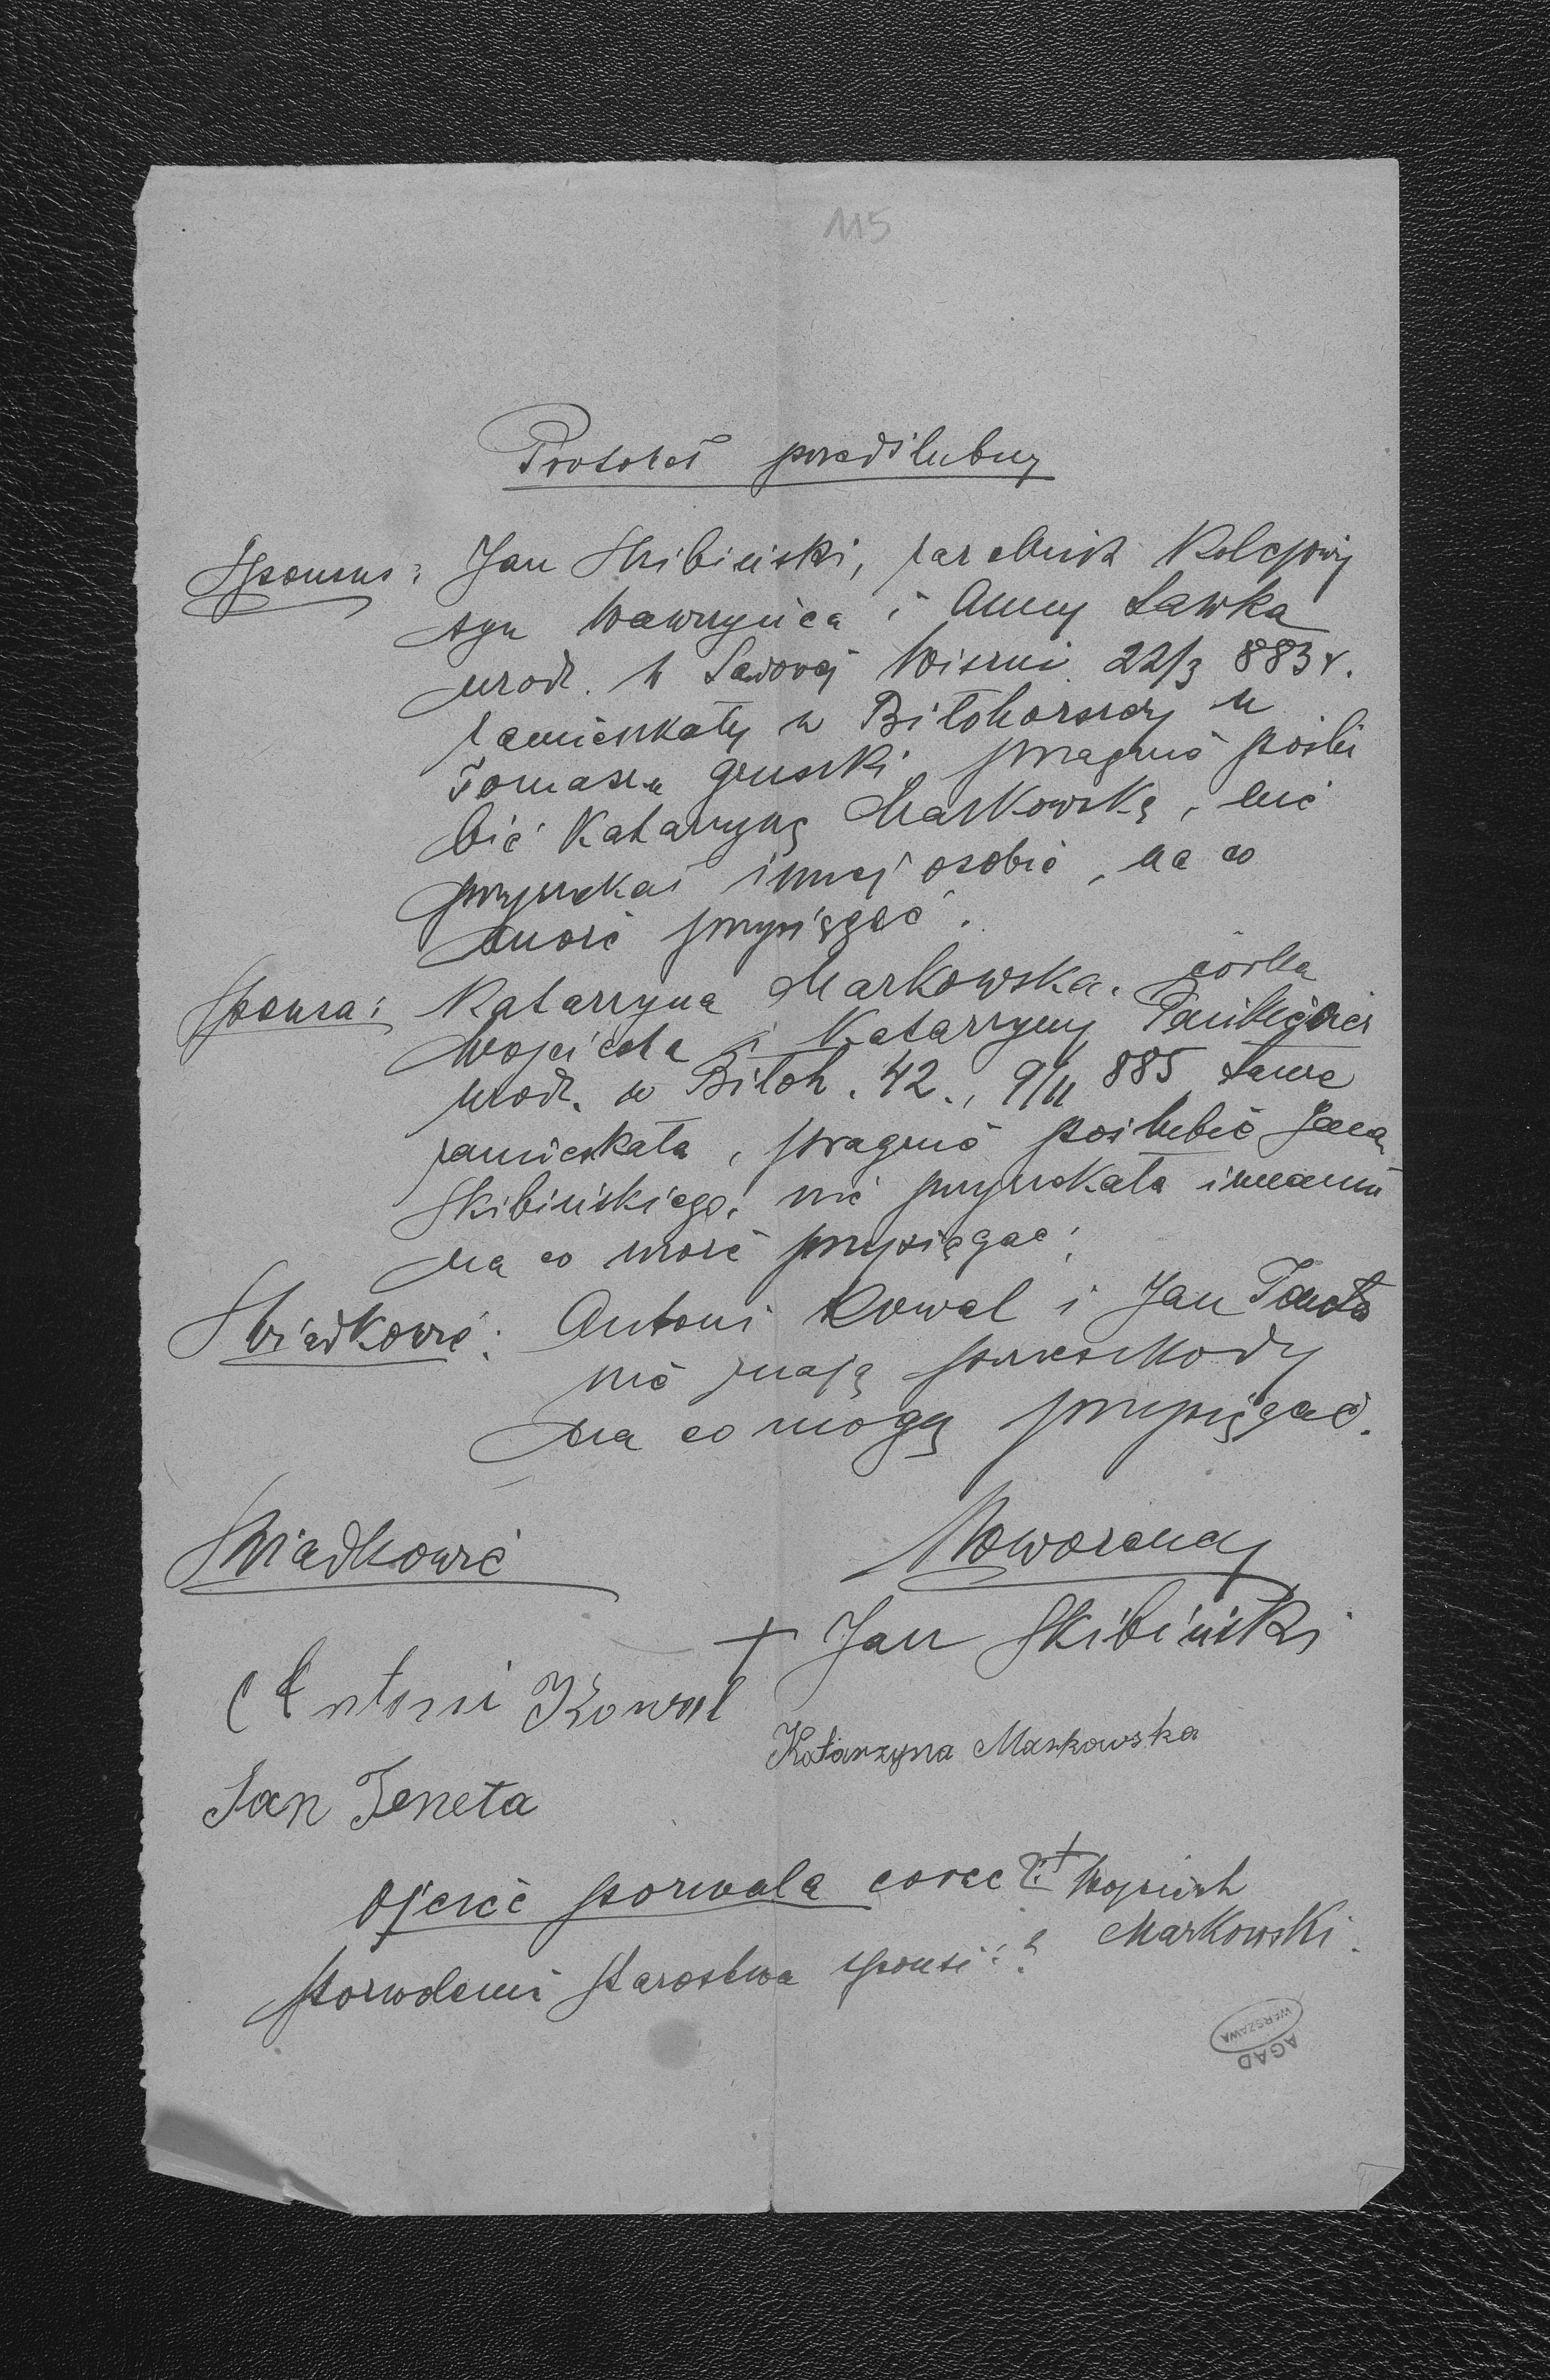 115
Protokół przedślubny
Sponsus: Jan Skibiński, zarobnik kolejowy
syn Wawrzyńca i Anny Ławka
urodz. w Sadowej Wiszni 22/3 883 r.
zamieszkały w Biłohorszczy u
Tomasza Gruszki, pragnie poślu
bić Katarzynę Markowską, nie
przyrzekał innej osobie, na co
może przysięgać.
Sponsa: Katarzyna Markowska, córka
Wojciecha i Katarzyny
urodz. w Biłoh. 42., 9/11 885 tamże
zamieszkała, pragnie poślubić Jana
Skibińskiego, nie przyrzekała innemu
na co może przysięgać.
Świadkowie: Antoni Kowal i Jan Teneta
nie znają przeszkody
na co mogą przysięgać.
Świadkowie Nowożeńcy
+ Jan Skibiński
Antoni Kowal
Katarzyna Markowska
Jan Teneta
Ojciec pozwala córce + Wojciech
Markowski.
Pozwoleni Starostwa sponsi
AGAD
WERSZAWA